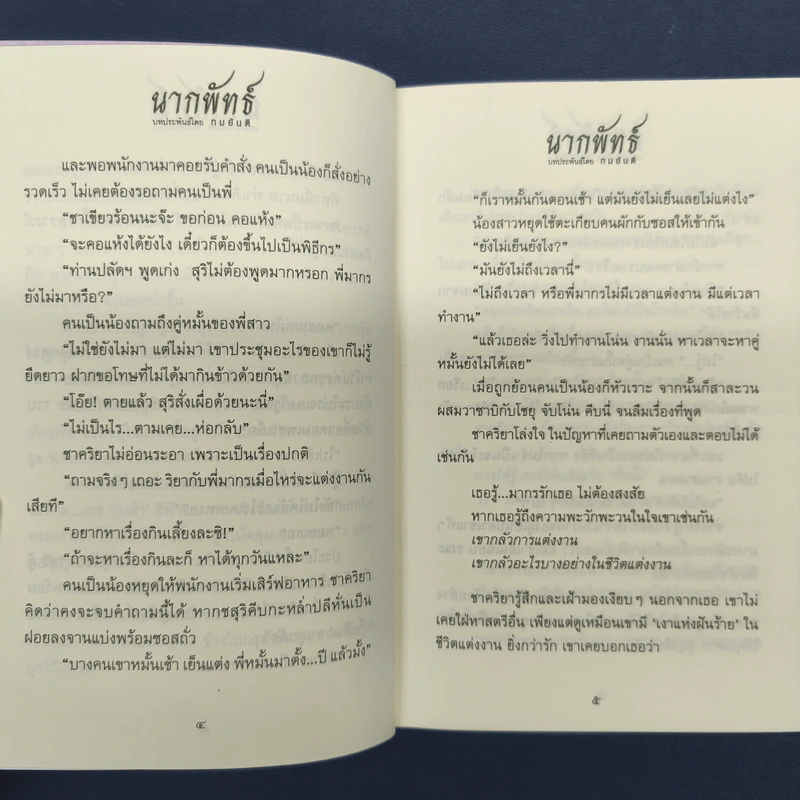 นากพัทธ์
บทประพันธ์โดย ทมยันตี
และพอพนักงานมาคอยรับคำสั่ง คนเป็นน้องก็สั่งอย่าง
รวดเร็ว ไม่เคยต้องรอถามคนเป็นพี่
“ชาเขียวร้อนนะจ๊ะ ขอก่อน คอแห้ง”
“จะคอแห้งได้ยังไง เดี๋ยวก็ต้องขึ้นไปเป็นพิธีกร”
“ท่านปลัดฯ พูดเก่ง สุริไม่ต้องพูดมากหรอก พี่มากร
ยังไม่มาหรือ?”
คนเป็นน้องถามถึงคู่หมั้นของพี่สาว
“ไม่ใช่ยังไม่มา แต่ไม่มา เขาประชุมอะไรของเขาก็ไม่รู้
ยืดยาว ฝากขอโทษที่ไม่ได้มากินข้าวด้วยกัน”
“โอ๊ย! ตายแล้ว สุริสั่งเผื่อด้วยนะนี่”
“ไม่เป็นไร...ตามเคย...ห่อกลับ”
ชาคริยาไม่อ่อนระอา เพราะเป็นเรื่องปกติ
“ถามจริงๆ เถอะ ริยากับพี่มากรเมื่อไหร่จะแต่งงานกัน
เสียที”
“อยากหาเรื่องกินเลี้ยงละซิ!”
“ถ้าจะหาเรื่องกินละก็ หาได้ทุกวันแหละ”
คนเป็นน้องหยุดให้พนักงานเริ่มเสิร์ฟอาหาร ชาคริยา
คิดว่าคงจะจบคำถามนี้ได้ หากชสุริคีบกะหล่ำปลีหั่นเป็น
ฝอยลงจานแบ่งพร้อมซอสถั่ว
“บางคนเขาหมั้นเช้า เย็นแต่ง พี่หมั้นมาตั้ง...ปี แล้วมั้ง”
๔
นากพัทธ์
บทประพันธ์โดย ทมยันตี
“ก็เราหมั้นกันตอนเช้า แต่มันยังไม่เย็นเลยไม่แต่งไง”
น้องสาวหยุดใช้ตะเกียบคนผักกับซอสให้เข้ากัน
“ยังไม่เย็นยังไง?”
“มันยังไม่ถึงเวลานี่”
“ไม่ถึงเวลา หรือพี่มากรไม่มีเวลาแต่งงาน มีแต่เวลา
ทำงาน”
“แล้วเธอล่ะ วิ่งไปทำงานโน่น งานนั่น หาเวลาจะหาคู่
หมั้นยังไม่ได้เลย”
เมื่อถูกย้อนคนเป็นน้องก็หัวเราะ จากนั้นก็สาละวน
ผสมวาซาบิกับโชยุ จับโน่น คีบนี่ จนลืมเรื่องที่พูด
ชาคริยาโล่งใจ ในปัญหาที่เคยถามตัวเองและตอบไม่ได้
เช่นกัน
เธอรู้...มากรรักเธอ ไม่ต้องสงสัย
หากเธอรู้ถึงความพะวักพะวนในใจเขาเช่นกัน
เขากลัวการแต่งงาน
เขากลัวอะไรบางอย่างในชีวิตแต่งงาน
ชาคริยารู้สึกและเฝ้ามองเงียบๆ นอกจากเธอ เขาไม่
เคยใฝ่หาสตรีอื่น เพียงแต่ดูเหมือนเขามี ‘เงาแห่งฝันร้าย’ ใน
ชีวิตแต่งงาน ยิ่งกว่ารัก เขาเคยบอกเธอว่า
๕